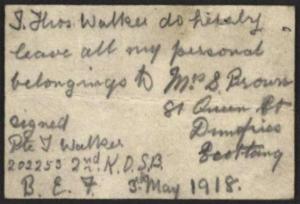 I. Thos. Walker do hereby
leave all my personal
belongings to Mrs S. Brown
81 Queen St
Dumfries
Scotland
Signed
Pte T Walker
202253 2nd K.O.S.B.
B. E. F. 5th May 1918.